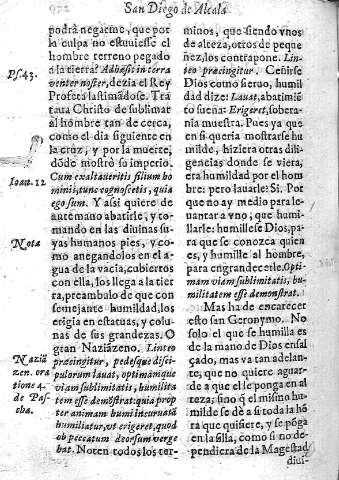 San Diego de Alcala
podrà negarme, que por
la culpa no estuuiesse el
hombre terreno pegado
a la tierra? Adhæsit in terra
venter noster, dezia el Rey
Profeta lastimãdose. Tra
taua Christo de sublimar
al hombre tan de cerca,
como el dia siguiente en
la cruz, y por la muerte,
dõde mostrò su imperio.
Cum exaltaueritis filium ho
minis, tunc cognoscetis, quia
ego sum. Y assi quiere de
antemano abatirle, y to-
mando en las diuinas su-
yas humanos pies, y co-
mo anegandolos en el a-
gua de la vacia, cubiertos
con ella, los llega a la tier
ra, preambulo de que con
semejante humildad, los
erigia en estatuas, y colu
nas de sus grandezas. O
gran Naziãzeno. Linteo
præcingitur, pedesque disci
pulorum lauat, optimamque
viam sublimitatis, humilita
tem esse demõstrat: quia prop
ter animam humi incuruatã
humiliatur, vt erigeret, quod
ob peccatum deorsum verge
bat. Noten todos los ter-
Ps. 43.
Ioan. 12
Nota
Naziã
zen. ora
tione 4.
de Pas-
cha.
minos, que siendo vnos
de alteza, otros de peque
ñez, los contrapone. Lin-
teo præcingitur. Ceñirse
Dios como sieruo, humil
dad dize: Lauat, abatimiẽ
to sueña: Erigeret, sobera-
nia muestra. Pues ya que
en si queria mostrarse hu
milde, hiziera otras dili
gencias donde se viera,
era humildad por el hom
bre: pero lauarle: Si. Por
que no ay medio para le-
uantar a vno, que humi-
llarle: humillese Dios, pa-
ra que se conozca quien
es, y humille al hombre,
para engrandecerle. Opti
mam viam sublimitatis, hu-
militatem esse demonstrat.
Mas ha de encarecer
esto san Geronymo. No
solo el que se humilla es
de la mano de Dios ensal
çado, mas va tan adelan-
te, que no quiere aguar-
de a que el le ponga en al
teza; sino q̃ el mismo hu
milde se dè a si toda la hõ
ra que quisiere, y se põga
en la silla, como si no de-
pendiera de la Magestad
diui-